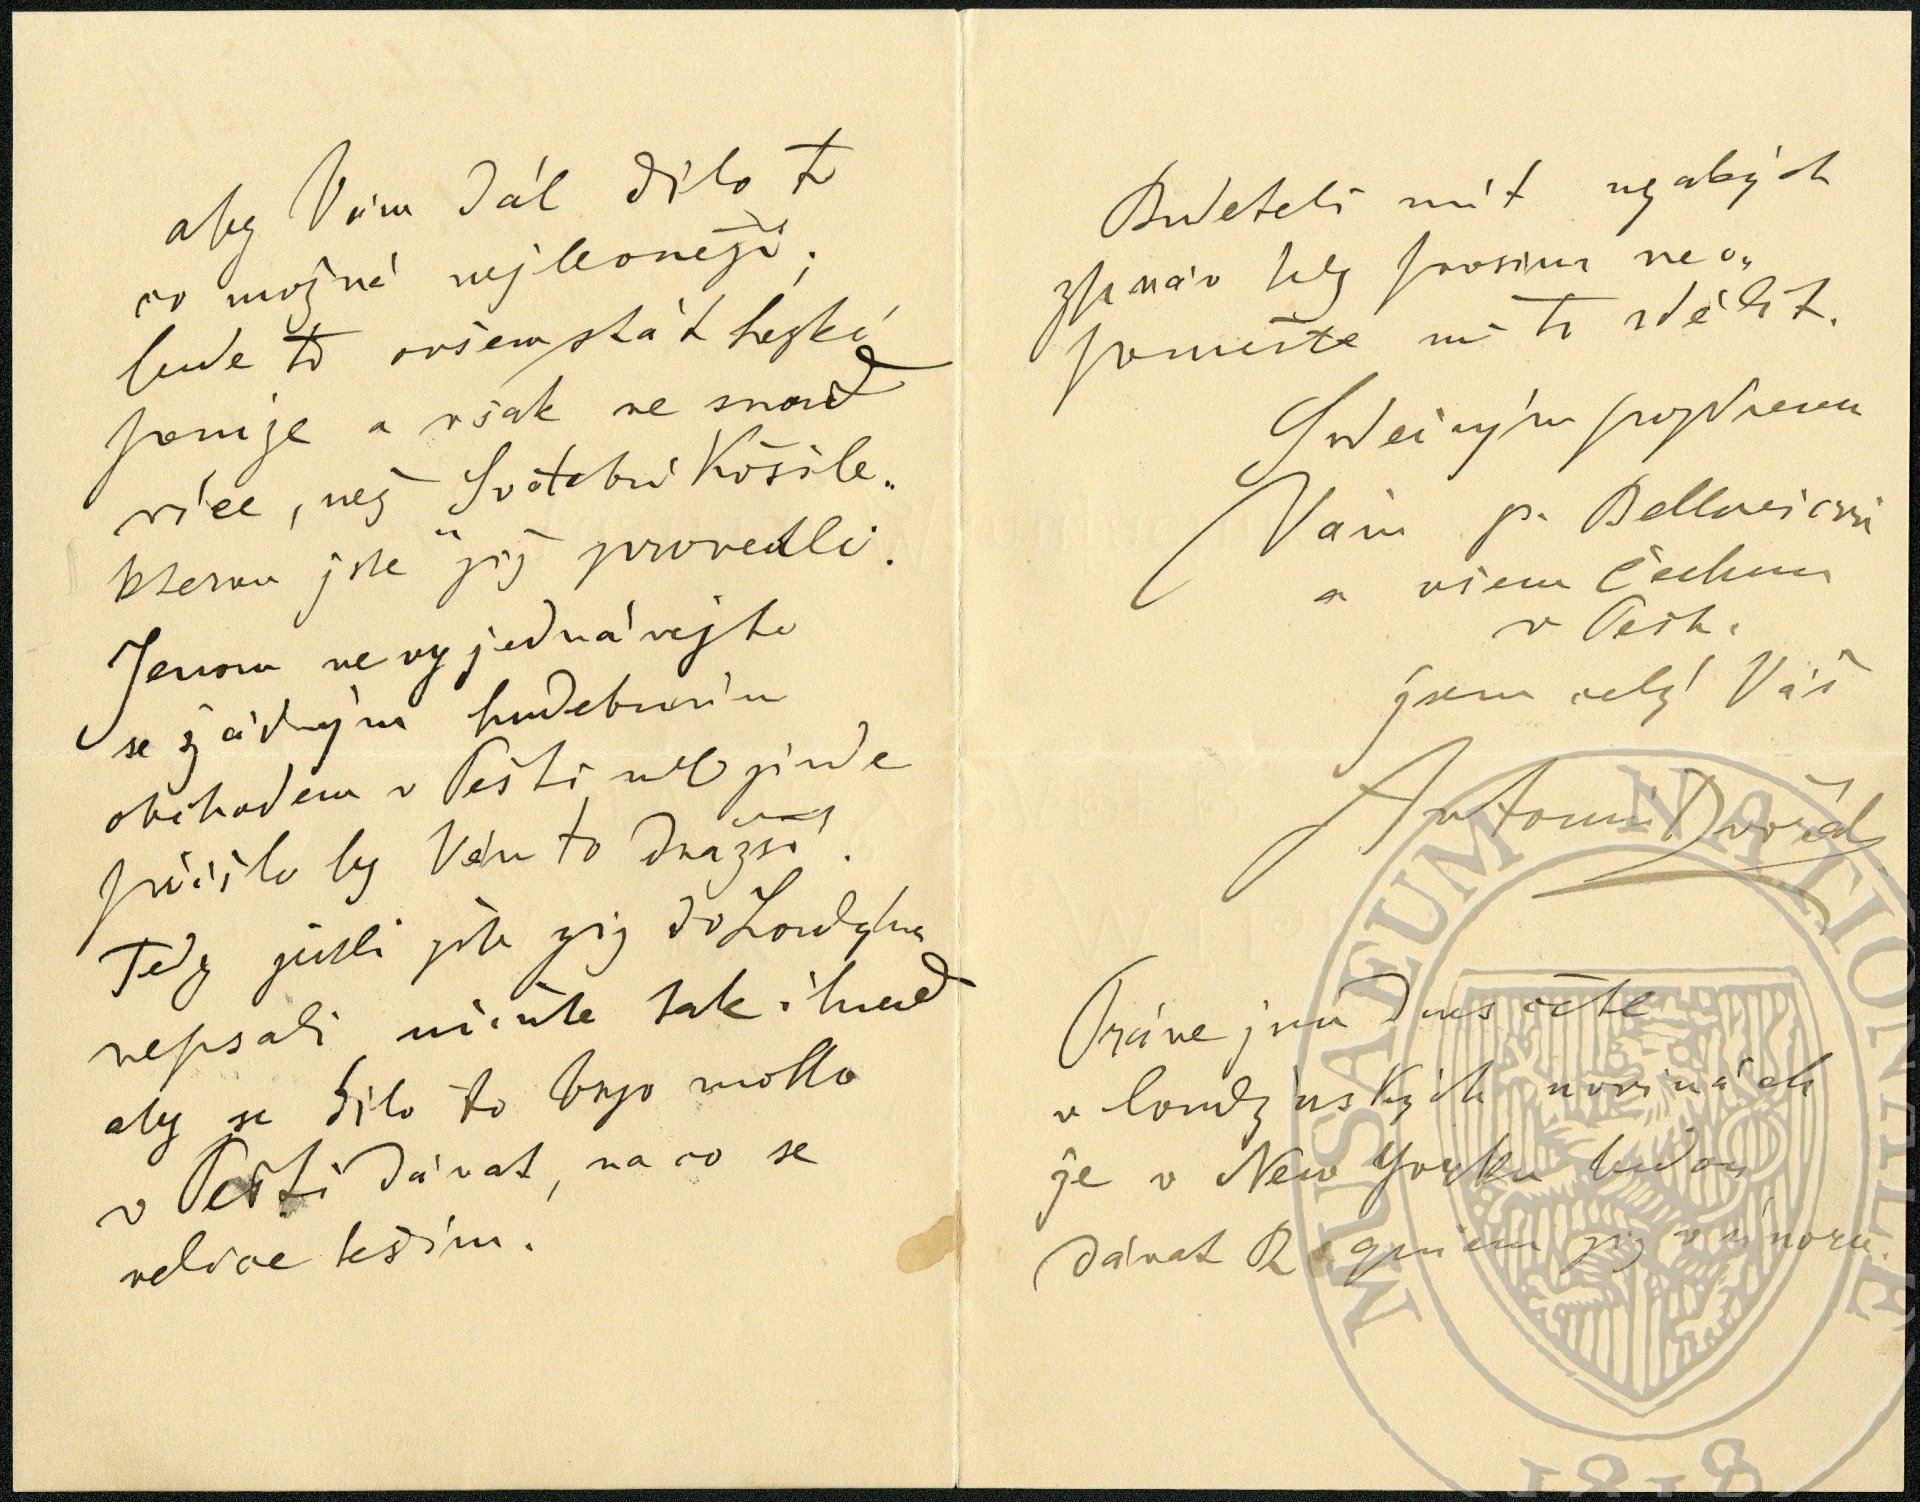 aby Vám dál dílo to
co možná nejlevněji;
bude to ovšem stát hezké
peníze a však ne snad
více, než Svatební Košile„
kterou jste "již provedli.
Jenom nevyjednávejte
se žádným hudebním
obchodem v Pešti neb jinde
přišlo by Vám to dražší.
Tedy jestli jste již do Londýna
nepsali učiňte tak ihned
aby se dílo to brzo mohlo
v Pešti dávat, na co se
velice těším.
Budeteli mít nějakých
zpráv tedy prosím neo„
pomeňte mi to sdělit.
Srdečným pozdravem
Vám p. Bellovičovi
a všem Čechům
v Pešti.
jsem celý Váš
Antonín Dvořák
Práve jsem dnes četl
v londýnských novinách
že v New Yorku budou
dávat Requiem již v únoru.
MUSAEUM NATIONALE
1818